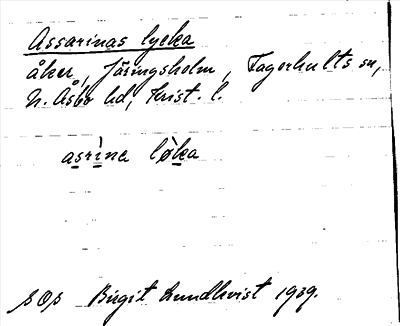 Assarinas lycka
åker, Järingsholm, Fagerhults sn,
N. Åsbo hd, Krist. l.
asrìna lø̀ka
Birgit Lundkvist 1939.